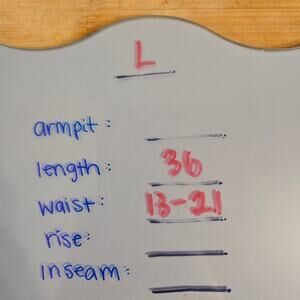 L
armpit:
length: 36
waist: 13-21
rise:
inseam: